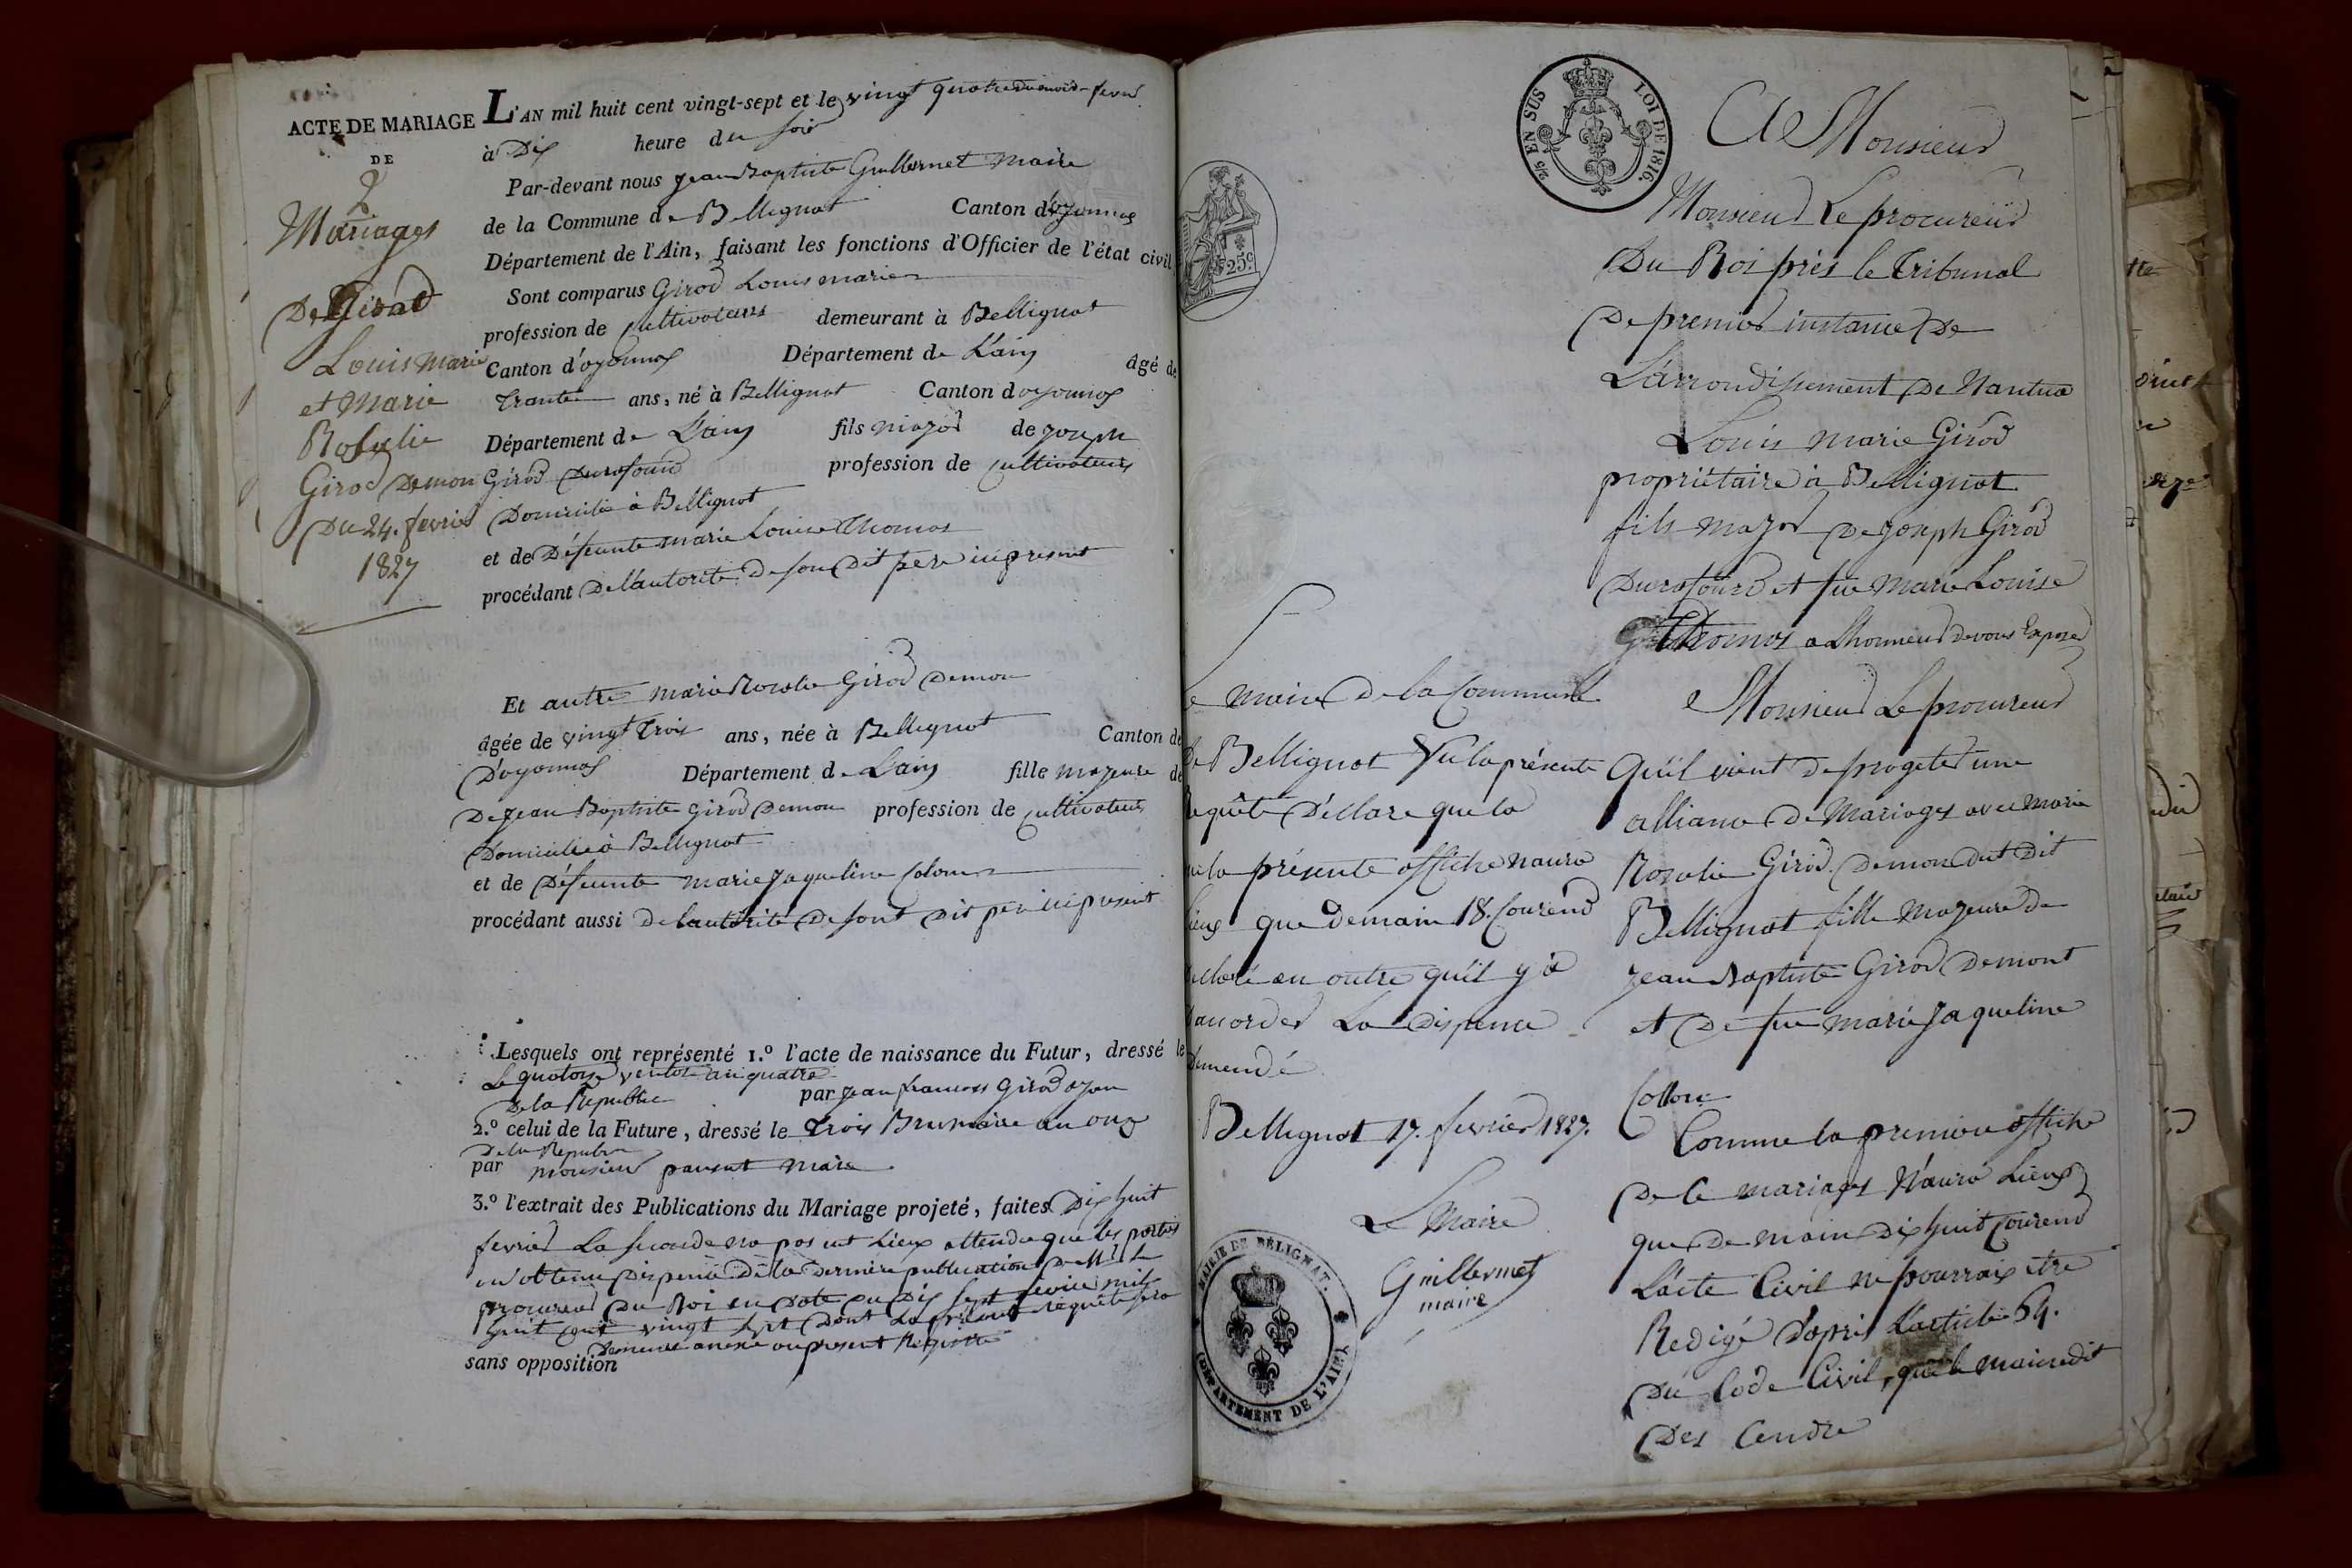 ACTE DE MARIAGE
DE
2
Mariages
De Girod
Louis Marie
et Marie
Rosalie
Girod Demon
Du 24. fevrier
1827
L'AN mil huit cent vingt-sept et le vingt quatre du mois fevrier
à Dix heure du soir
Par-devant nous jean Baptiste Guillermet Maire
de la Commune de Bellignat Canton d'oyonnax
Département de l'Ain, faisant les fonctions d'Officier de l'état civil
Sont comparus Girod Louis marie
profession de Cultivateur demeurant à Bellignat
Canton d'oyonnax Département de L'ain âgé de
Trante ans, né à Bellignat Canton d oyonnax
Département de L'ain fils major de joseph
Girod profession de Cultivateur
Domicilié à Bellignat
et de Défeunte marie Louise Thomas
procédant De l'autorité de son Dit pere ici present
Et autre marie Rosalie Girod Demon
âgée de vingt Trois ans, née à Bellignat Canton de
D'oyonnax Département de L'ain fille majeure de
De jean Baptiste Girod Demon profession de Cultivateur
Domicilié à Bellignat
et de Défeunte marie jaqueline Colom
procédant aussi De lautorité De sont Dit per ici present
Lesquels ont représenté 1.º l'acte de naissance du Futur, dressé le
Le quatorze ventos an quatre
De la Republic par jean francois Girod
2.º celui de la Future, dressé le Trois Brumaire an onz
De la Republic
par monsieur maire
3.º l'extrait des Publications du Mariage projeté, faites Dix huit
fevrier La seconde na pas eut Lieux attendu que les parties
on obtenu Dispence De la derniere publication De Mr Le
procureur Du Roi en Date du Dix sept fevrier mil
huit cent vingt sept Dont La présente requête sera
Demeuré anexé au présent Registre
sans opposition
25 C
2/5 EN SUS LOI DE 1816.
Le maire De la Commune
De Bellignat Vu la présente
Requête Déclare que la
que la présente affiche naura
Lieux que Demain 18. Courend
Declare en outre qu'il y a
D'accorder La Dispence
Démendé
Bellignat 17. fevrier 1827.
Le Maire
Guillermet
maire
MAIRIE DE BÉLIGNAT.
(DÉPARTEMENT DE L'AIN)
A Monsieur
Monsieur Le procureur
Du Roi près le Tribunal
De premier instance De
L'arrondissement De Nantua
Louis Marie Girod
propriétaire à Bellignat
fils major De joseph Girod
et fue Marie Louise
Thomas a Lhonneur de vous Exposer
Monsieur Le procureur
Qu'il vient De progeter une
alliance De Mariages avec Marie
Rosalie Girod Demon dut Dit
Bellignat fille majeure De
jean Baptiste Girod Demont
et De fue marie Jaqueline
Collom
Comme la premiere affiche
De Ce mariages N'aura Lieux
que De main Dix huit Courend
L'acte Civil ne pourrais être
Redigé D'après L'article 64.
Du Code Civil, que le maicredit
Des Cendre